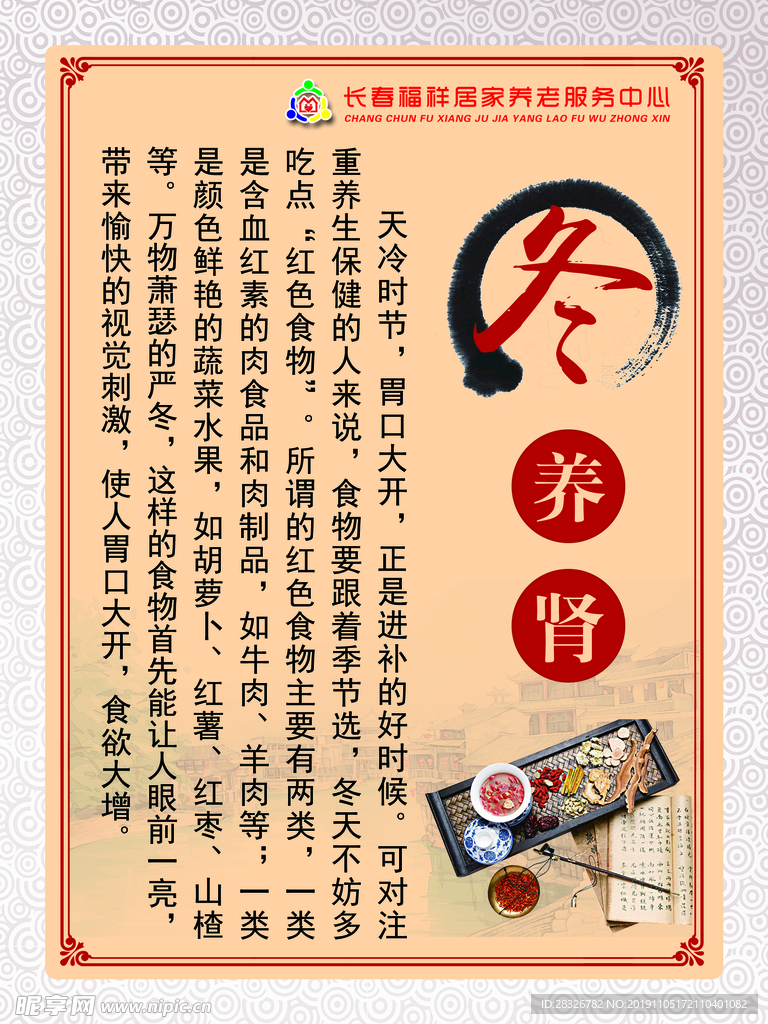 长春福祥居家养老服务中心
CHANG CHUN FU XIANG JU JIA YANG LAO FU WU ZHONG XIN
冬
养
肾
天冷时节，胃口大开，正是进补的好时候。可对注
重养生保健的人来说，食物要跟着季节选，冬天不妨多
吃点“红色食物”。所谓的红色食物主要有两类，一类
是含血红素的肉食品和肉制品，如牛肉、羊肉等；一类
是颜色鲜艳的蔬菜水果，如胡萝卜、红薯、红枣、山楂
等。万物萧瑟的严冬，这样的食物首先能让人眼前一亮，
带来愉快的视觉刺激，使人胃口大开，食欲大增。
昵享网 www.nipic.cn
ID:28326782 NO:20191105172110401082